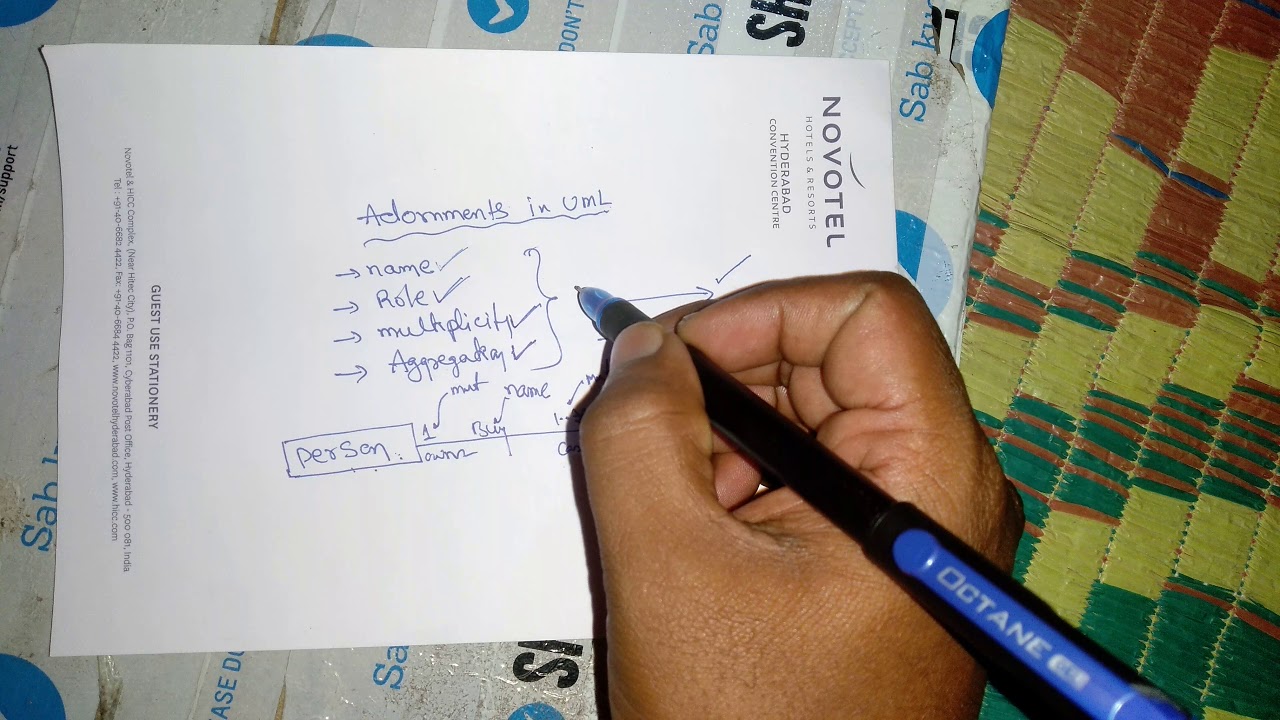 Adornments in UML
→ name ✓
→ Role ✓
→ multiplicity ✓
→ Aggregation ✓
mut name
1 Buy
person
NOVOTEL
HOTELS & RESORTS
HYDERABAD
CONVENTION CENTRE
GUEST USE STATIONERY
Novotel & HICC Complex, (Near Hitec City), P.O. Bag 1101, Cyberabad Post Office, Hyderabad - 500 081, India
Tel : +91-40-6682 4422, Fax: +91-40-6684 4422, www.novotelhyderabad.com, www.hicc.com
OCTANE
/support
DON'T
Sab
Sab
Sab